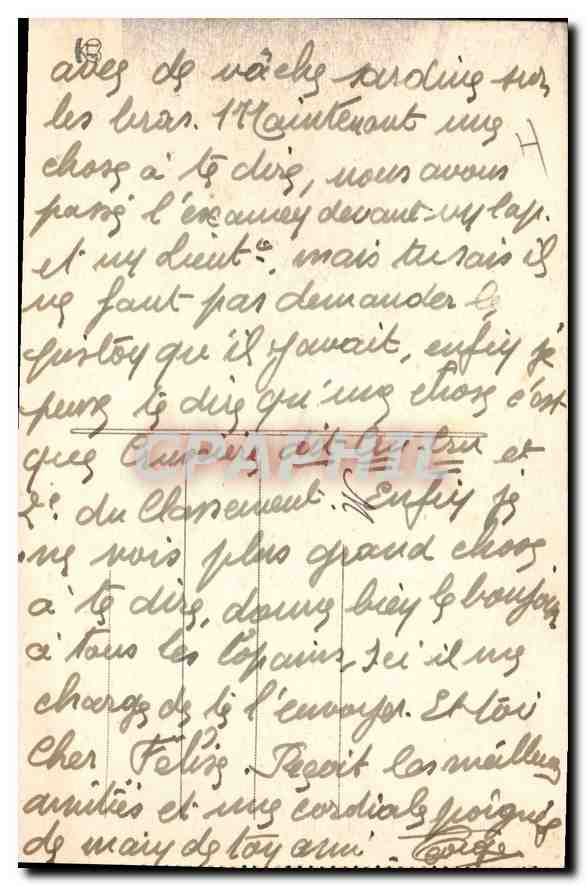 avec de vâche sardine sur
les bras. Maintenant une
chose à te dire, nous avons
passé l'examen devant un Cap.
et un Lieut. mais tu sais il
ne faut pas demander le
piston qu'il y avait, enfin je
peux te dire qu'une chose c'est
que dit et
2e du Classement. Enfin je
ne vois plus grand chose
à te dire, donne bien le bonjour
à tous les Copains, Ici il me
charge de te l'envoyer. Et toi
Cher Félise. Reçoit les meilleurs
amitiés et une cordiale poignée
de main de ton ami.
CPAPHIL